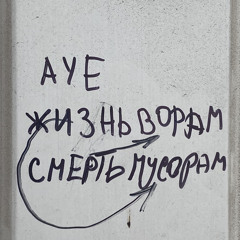 АУЕ
ЖИЗНЬ ВОРАМ
СМЕРТЬ МУСОРАМ